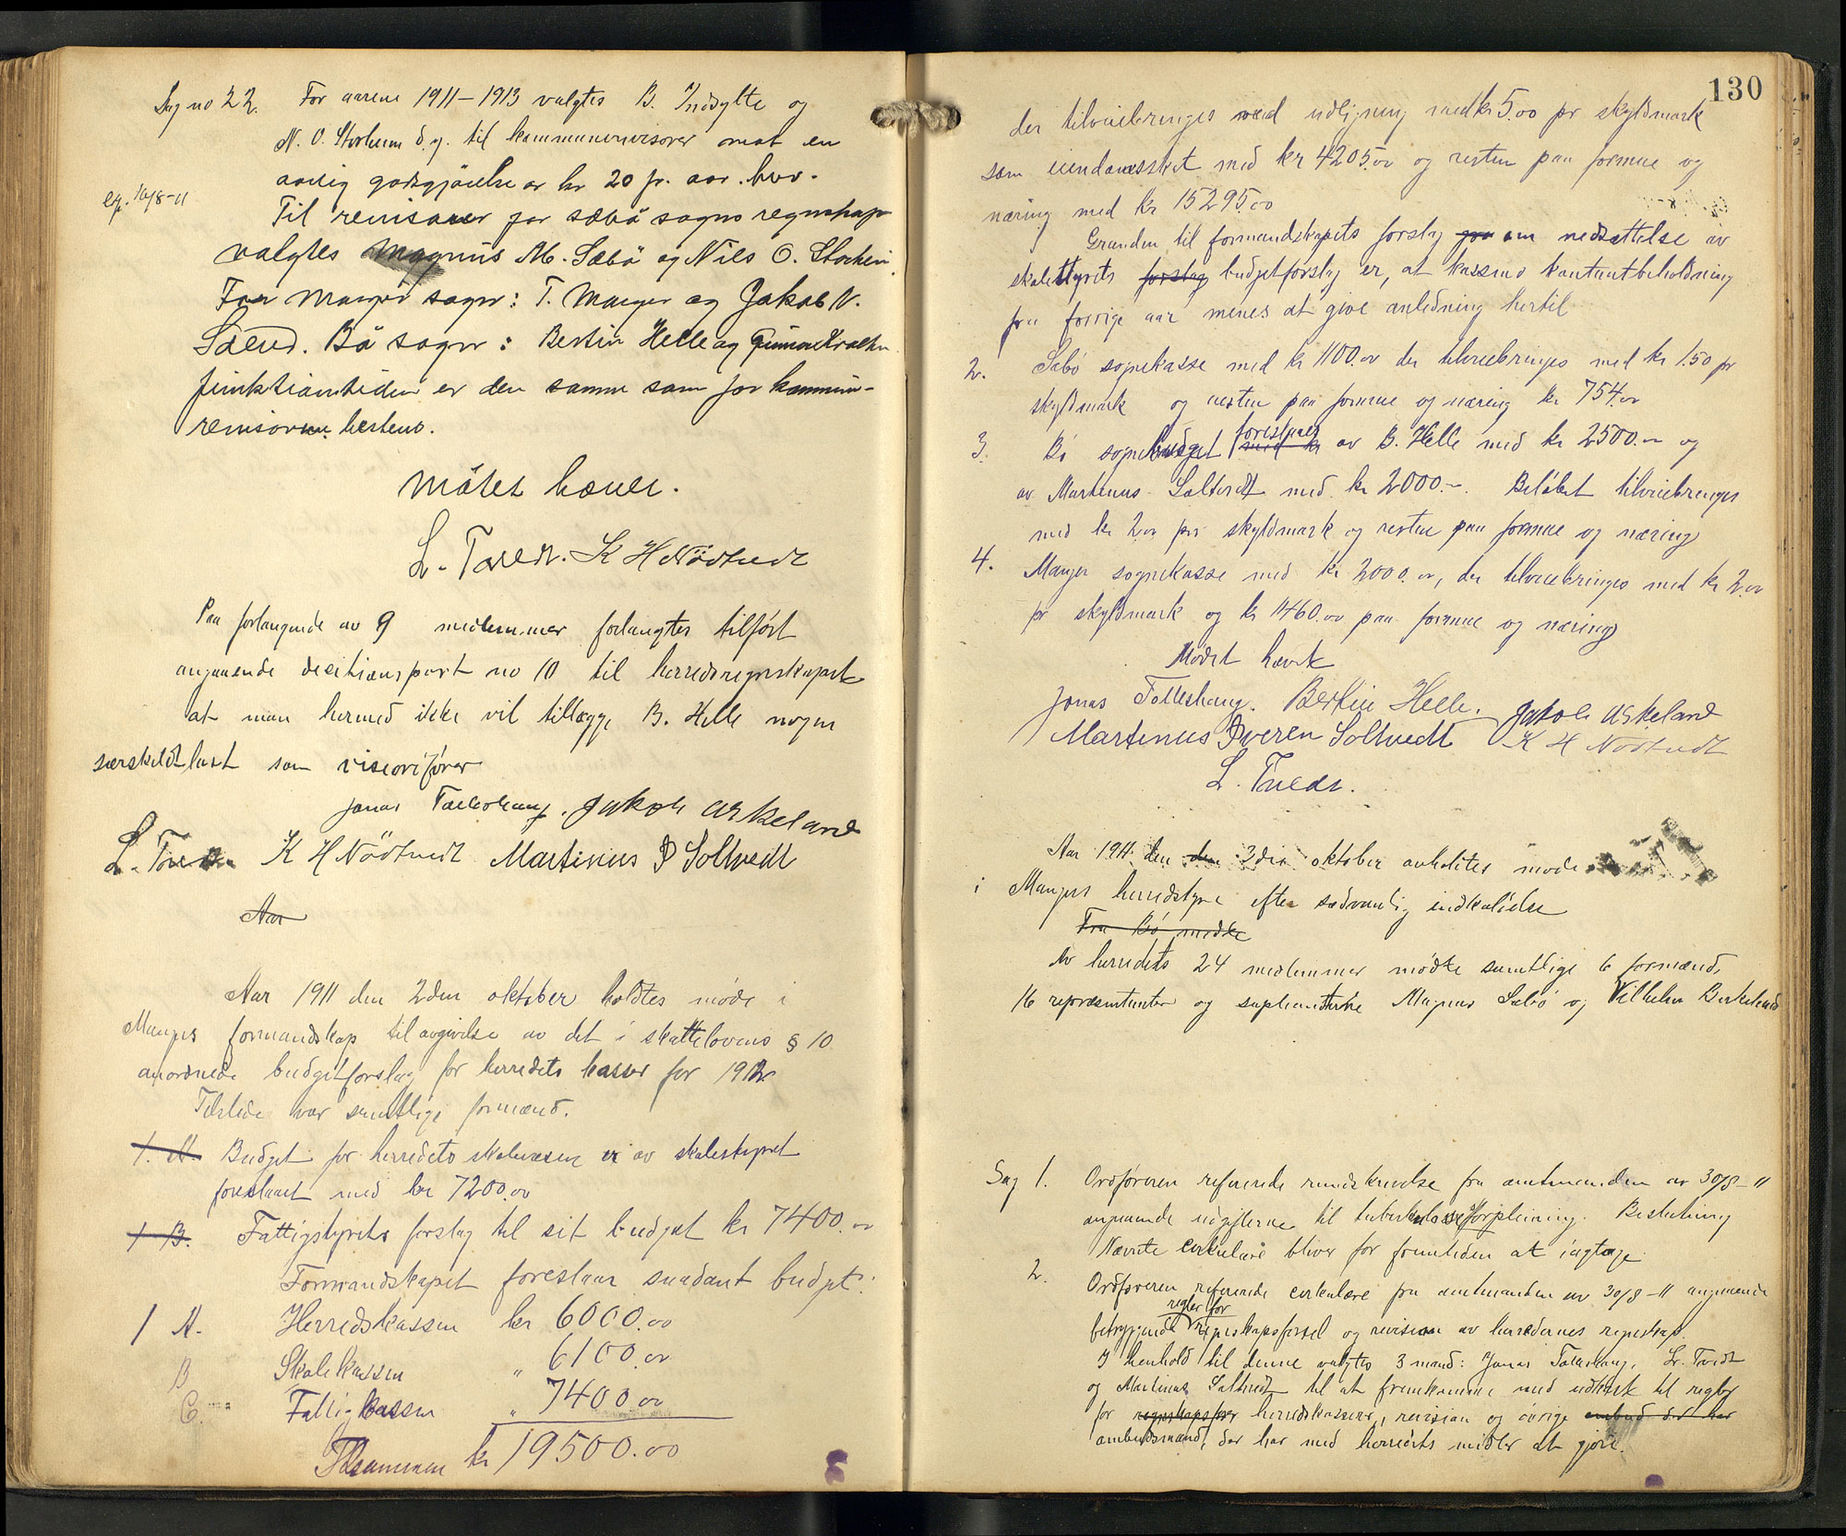 Sag no 22. For aarene 1911–1913 valgtes B. Indsylte og
N. O. Storheim d.y. til kommunerevisorer mot en
aarlig godtgjörelse av kr 20 pr. aar hver.
ep. 16/8-11
Til revisorer for sæbö sogns regnskap
valgtes Magnus M. Sæbö og Nils O. Storheim
For Manger sogn: T. Manger og Jakob N.
Bö sogn: Bertin Helle og
funktionstiden er den samme som for kommune-
revisorene hestens.
Mötet hævet.
L. Tvedt. K H Nödtvedt
Paa forlangende av 9 medlemmer forlangtes tilfört
angaaende decitionspost no 10 til herredsregnskapet
at man hermed ikke vil tillægge B. Helle nogen
særskildt last som
Jonas Tolleshaug. Jakob Askeland
L. Tvedt K H Nödtvedt Martinus P Soltvedt
Aar
Aar 1911 den 2den oktober holdtes møde i
Mangers formandskap til avgivelse av det i skattelovens § 10
anordnede budgetforslag for herredets kasser for 1912
Tilstede var samtlige formænd.
1. A. Budget for herredets skolevæsen er av skolestyret
foreslaaet med kr 7200.00
1 B. Fattigstyrets forslag til sit budget kr 7400.00
Formandskapet foreslaar saadant budget:
1 A. Herredskassen kr 6000.00
B Skolekassen " 6100.00
C. Fattigkassen " 7400.00
Tilsammen kr 19500.00
130
der tilveiebringes ved utligning med kr 5.00 pr skyldmark
som eiendomsskat med kr 4205.00 og resten paa formue og
næring med kr 15295.00
Grunden til formandskapets forslag paa om nedsættelse av
skolestyrets forslag budgetforslag er, at kassens kontantbeholdning
fra forrige aar menes at give anledning hertil
2. Sæbö sognekasse med kr 1100.00 der tilveiebringes med kr 1.50 pr
skyldmark og resten paa formue og næring kr 754.00
3. Bö sognebudget foreslaaes med kr av B. Helle med kr 2500.– og
av Martinus Soltvedt med kr 2000.–. Belöbet tilveiebringes
med kr 2.00 pr skyldmark og resten paa formue og næring
4. Manger sognekasse med kr 2000.00, der tilveiebringes med kr 2.00
pr skyldmark og kr 1460.00 paa formue og næring
Mödet hævet
Jonas Tolleshaug. Bertin Helle. Jakob Askeland
Martinus Iveren Soltvedt K H Nödtvedt
L. Tvedt.
Aar 1911 den den 3die oktober avholdtes møde
i Mangers herredstyre efter sedvanlig indkaldelse
Fra Bö mødte
Av herredets 24 medlemmer mødte samtlige 6 formænd,
16 repræsentanter og suplianterne Magnus Sæbö og Vilhelm Birkeland
Sag 1. Ordføreren refererede rundskrivelse fra amtmanden av 30/8-11
angaaende udgifterne til tuberkuloseforpleining. Beslutning
Nævnte cirkulære bliver for fremtiden at iagtage.
2. Ordføreren refererede cirkulære fra amtmanden av 30/8-11 angaaende
regler for
betryggende regnskapsførsel og revision av herredernes regnskap.
I henhold til denne valgtes 3 mænd: Jonas Tolleshaug, L. Tvedt
og Martinus Soltvedt til at fremkomme med utkast til regler
for regnskapsfører herredskasserer, revision og övrige ombud der har
ombudsmænd, der har med herredets midler at gjöre.